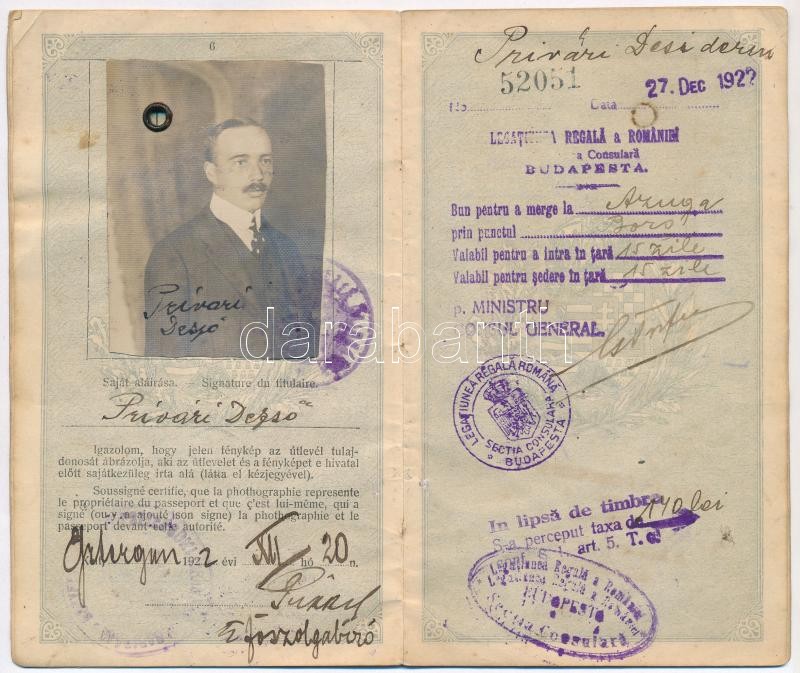 6
Privári
Dezső
Saját aláírása. — Signature du titulaire.
Privári Dezső
Igazolom, hogy jelen fénykép az útlevél tulaj-
donosát ábrázolja, aki az útlevelet és a fényképet e hivatal
előtt sajátkezüleg irta alá (látta el kézjegyével).
Soussigné certifie, que la phothographie represente
le propriétaire du passeport et que ç'est lui-même, qui a
signé (ou y a ajouté son signe) la phothographie et le
passeport devant cette autorité.
1922 évi XII hó 20 n.
főszolgabíró
Privári Desiderin
52051
27. DEC 1922
No. Data
LEGAȚIUNEA REGALĂ a ROMÂNIEI
a Consulară
BUDAPESTA.
Bun pentru a merge la Azuga
prin punctul Bors
Valabil pentru a intra în țară 15 zile
Valabil pentru ședere în țară 15 zile
p. MINISTRU
CONSUL GENERAL.
LEGAȚIUNEA REGALĂ ROMÂNĂ
SECȚIA CONSULARĂ
* BUDAPESTA *
In lipsă de timbre
S-a perceput taxa de 140 lei
art. 5. T. C.
Legațiunea Regală a României
BUDAPESTA
Secția Consulară
darabanth